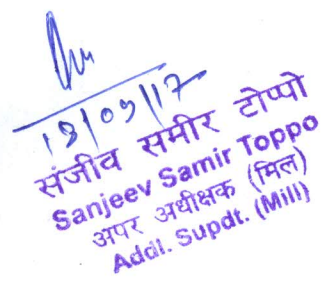 18/09/17
संजीव समीर टोप्पो
Sanjeev Samir Toppo
अपर अधीक्षक (मिल)
Addl. Supdt. (Mill)